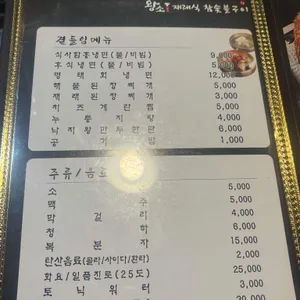 왕소 재래식 참숯불구이
곁들임메뉴
식사함흥냉면(물/비빔) 9,000
후식냉면(물/비빔) 5,000
명태회냉면 12,000
해물된장찌개 5,000
재래된장찌개 3,000
치즈계란찜 5,000
누룽지탕 4,000
낙지왕만두한판 6,000
공기밥 1,000
주류/음료
소주 5,000
맥주 5,000
막걸리 4,000
청하 6,000
복분자 15,000
탄산음료(콜라/사이다/환타) 2,000
화요/일품진로(25도) 25,000
토닉워터 3,000